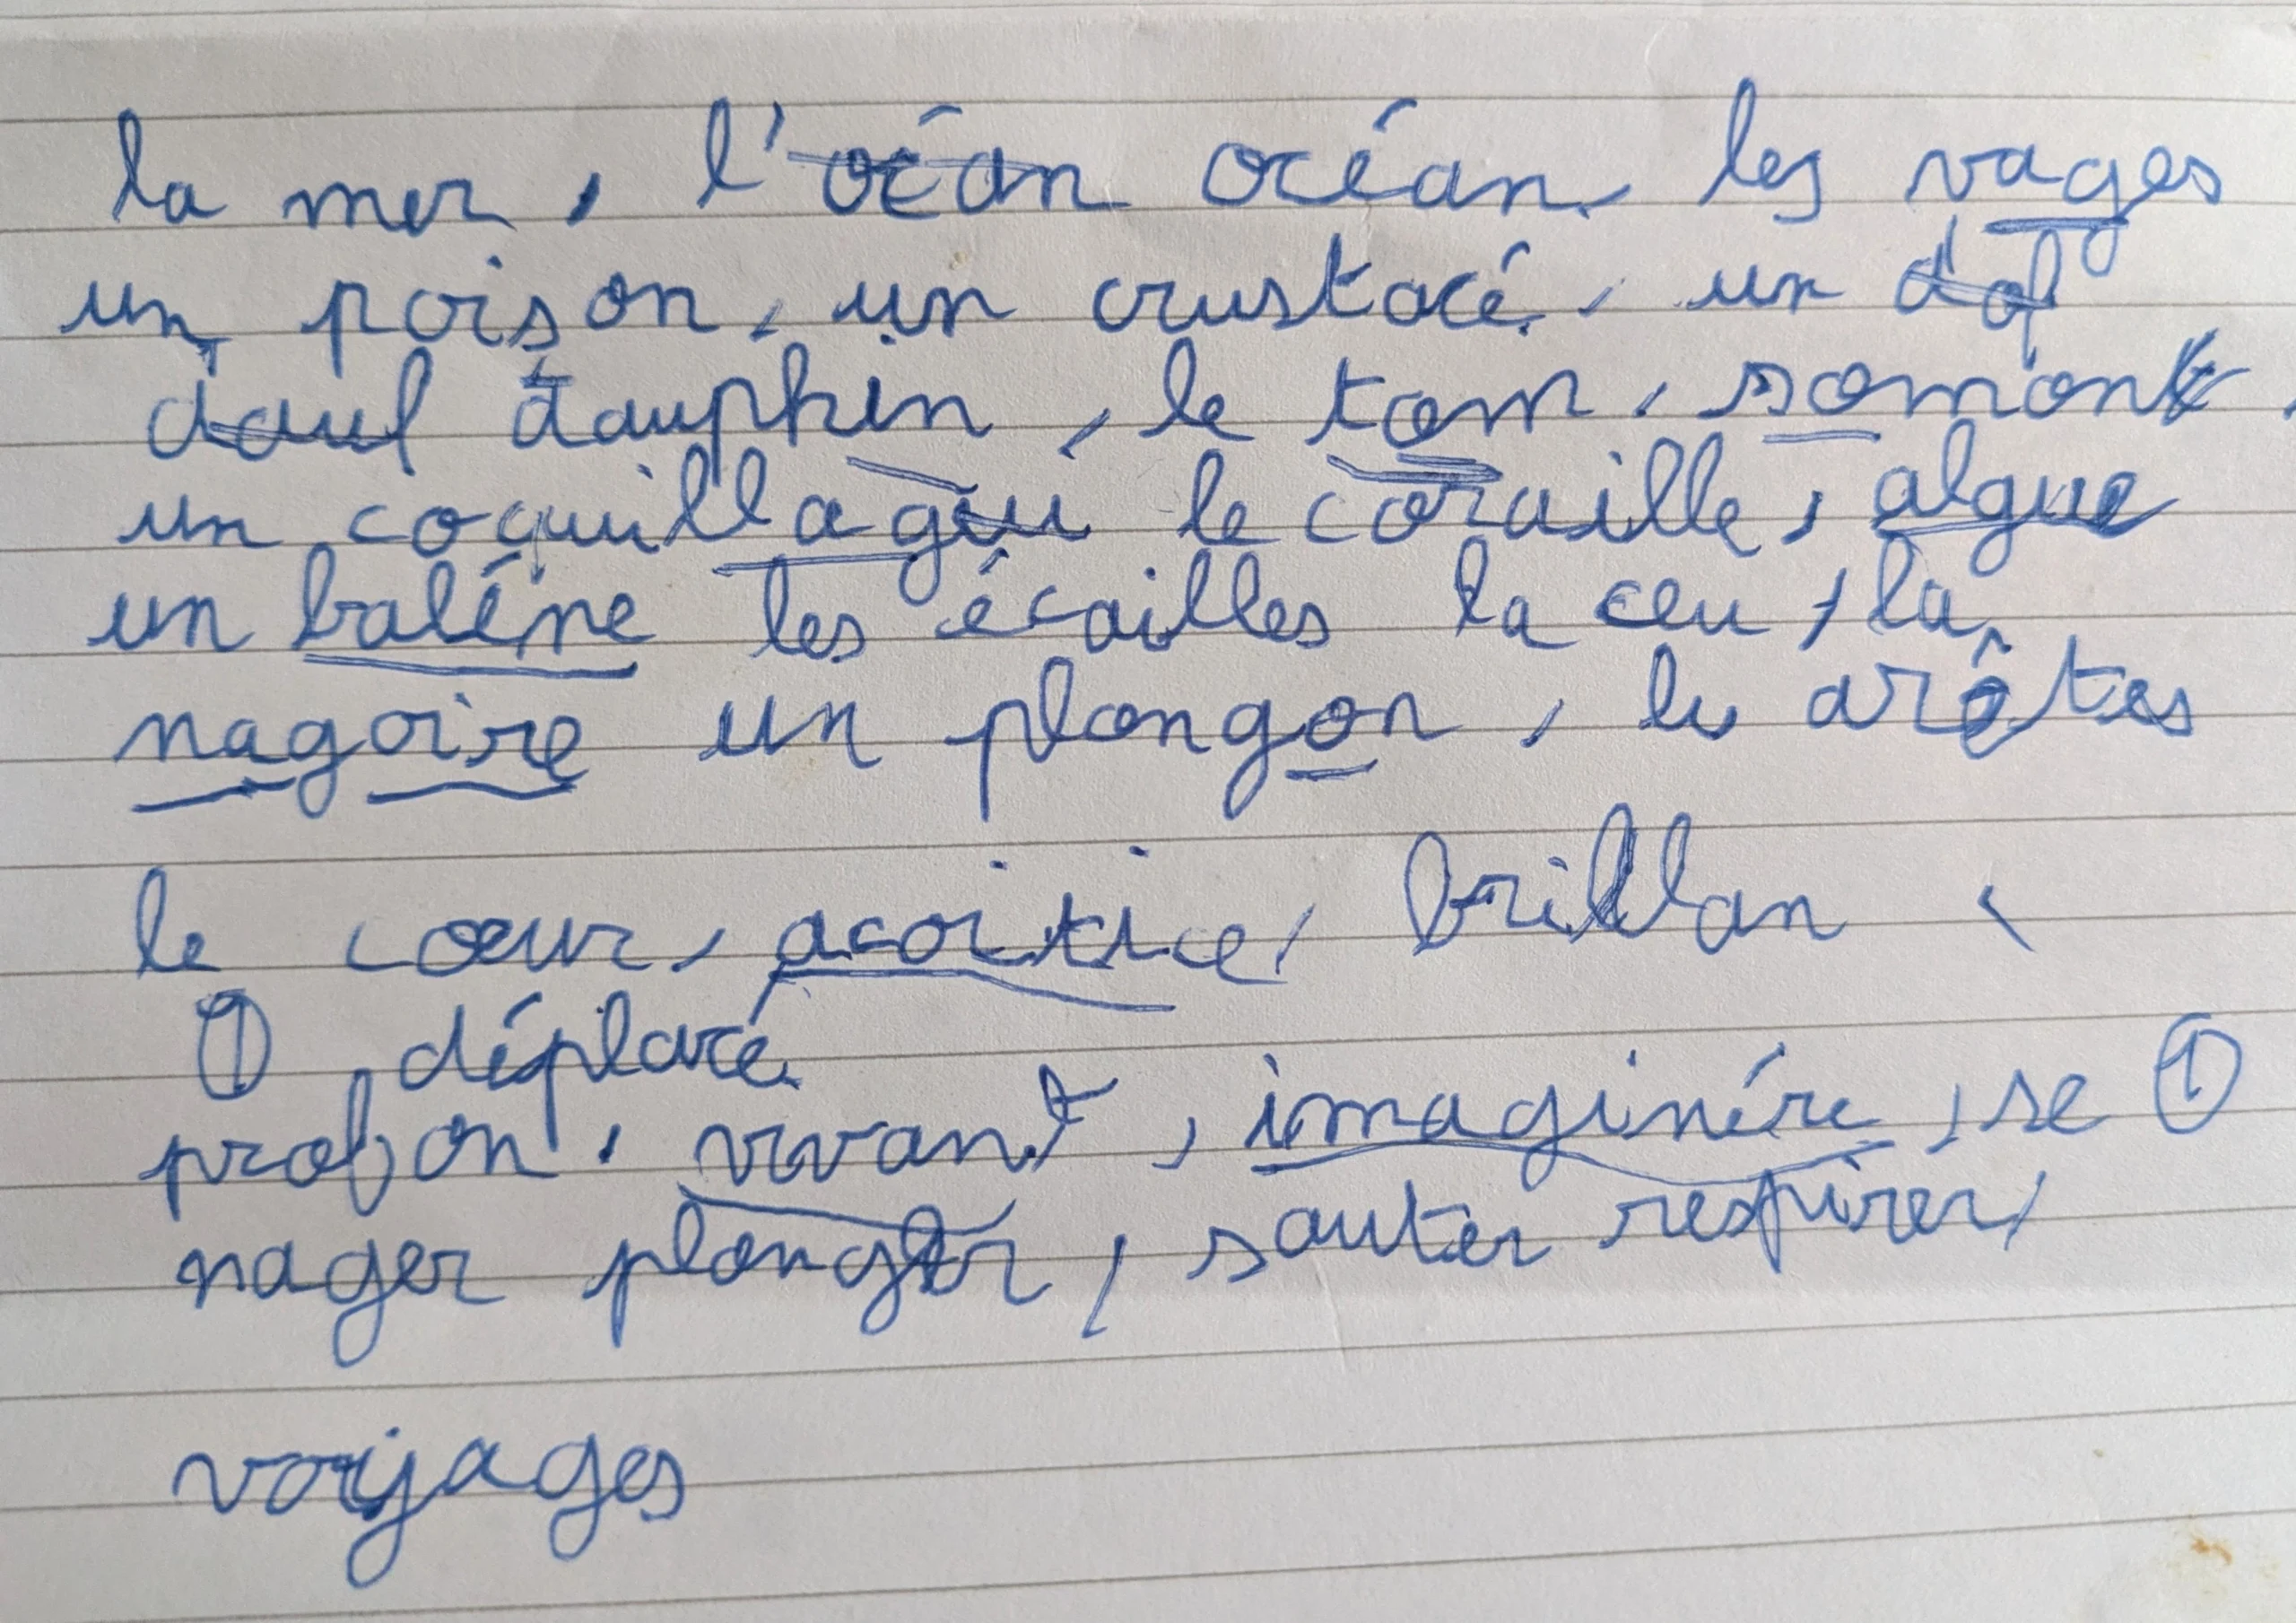 la mer, l'océan océan, les vages
un poison, un crustacé, un dof
dauf dauphin, le tom, somont,
un coquillagui le coraille, algue
un baléne les écailles la ceu, la
nagoire un plongon, les arêtes
le cœur, acoitice, brillan
① déplacé
profon, vivant, imaginére, se ①
nager plonger, sauter respirér,
voyages